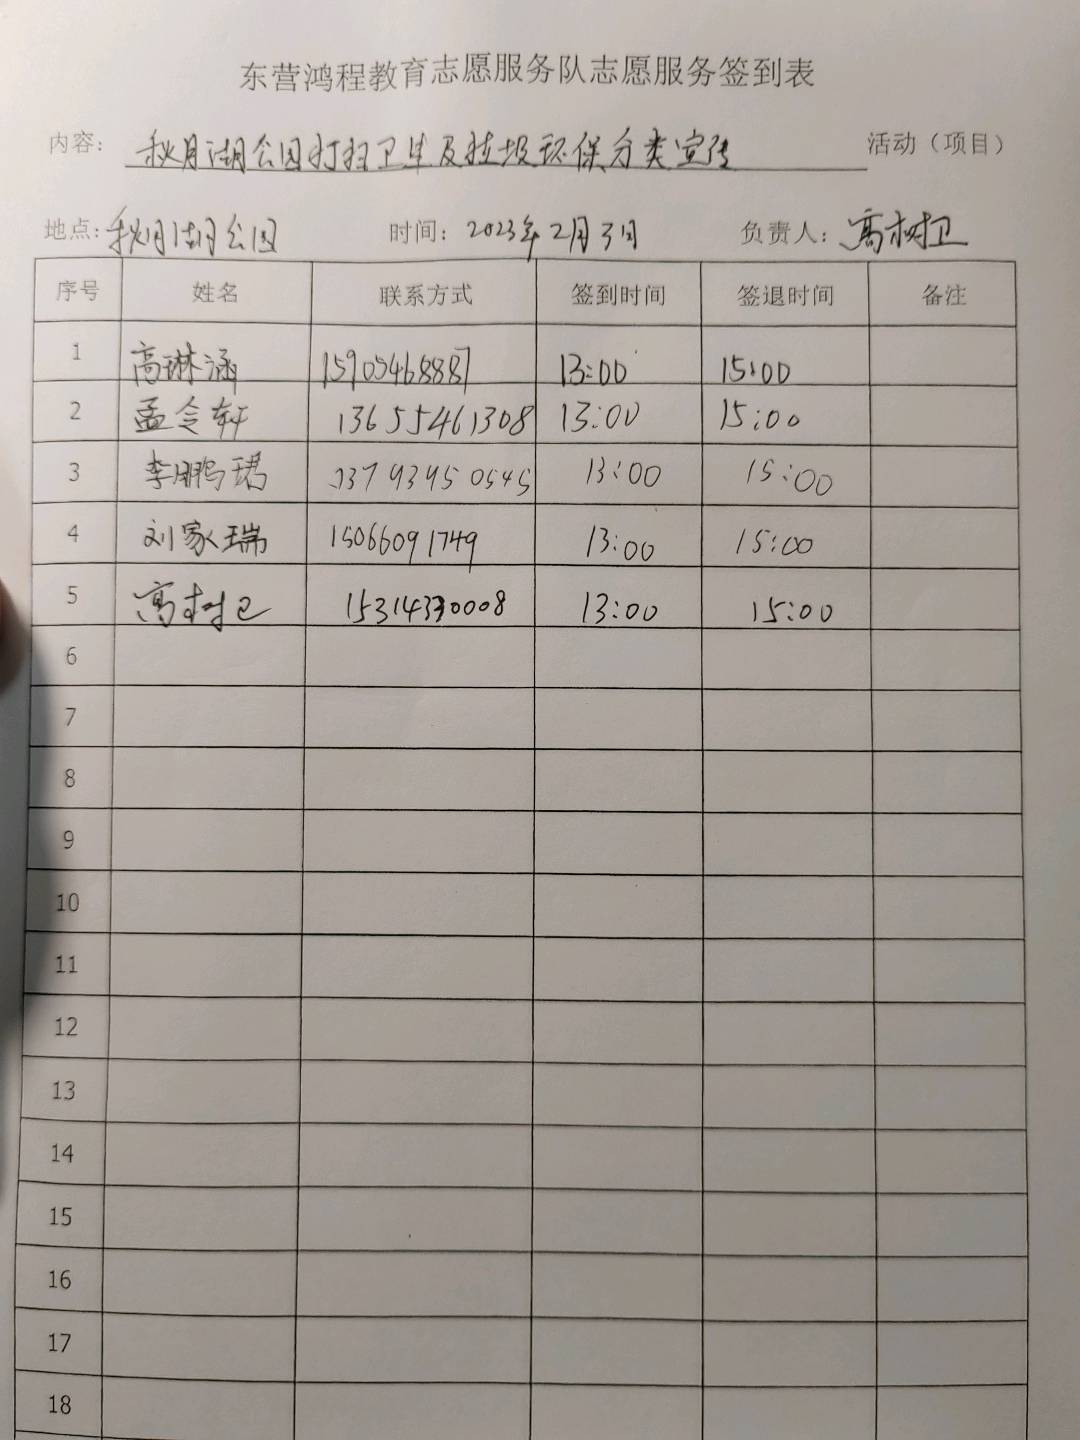 东营鸿程教育志愿服务队志愿服务签到表
内容：秋月湖公园打扫卫生及垃圾环保分类宣传 活动（项目）
地点：秋月湖公园 时间：2023年2月3日 负责人：高树卫
序号 姓名 联系方式 签到时间 签退时间 备注
1 高琳涵 15905468887 13:00 15:00
2 孟令轩 13655461308 13:00 15:00
3 李鹏珺 13793950545 13:00 15:00
4 刘家瑞 15066091749 13:00 15:00
5 高树卫 15314330008 13:00 15:00
6
7
8
9
10
11
12
13
14
15
16
17
18